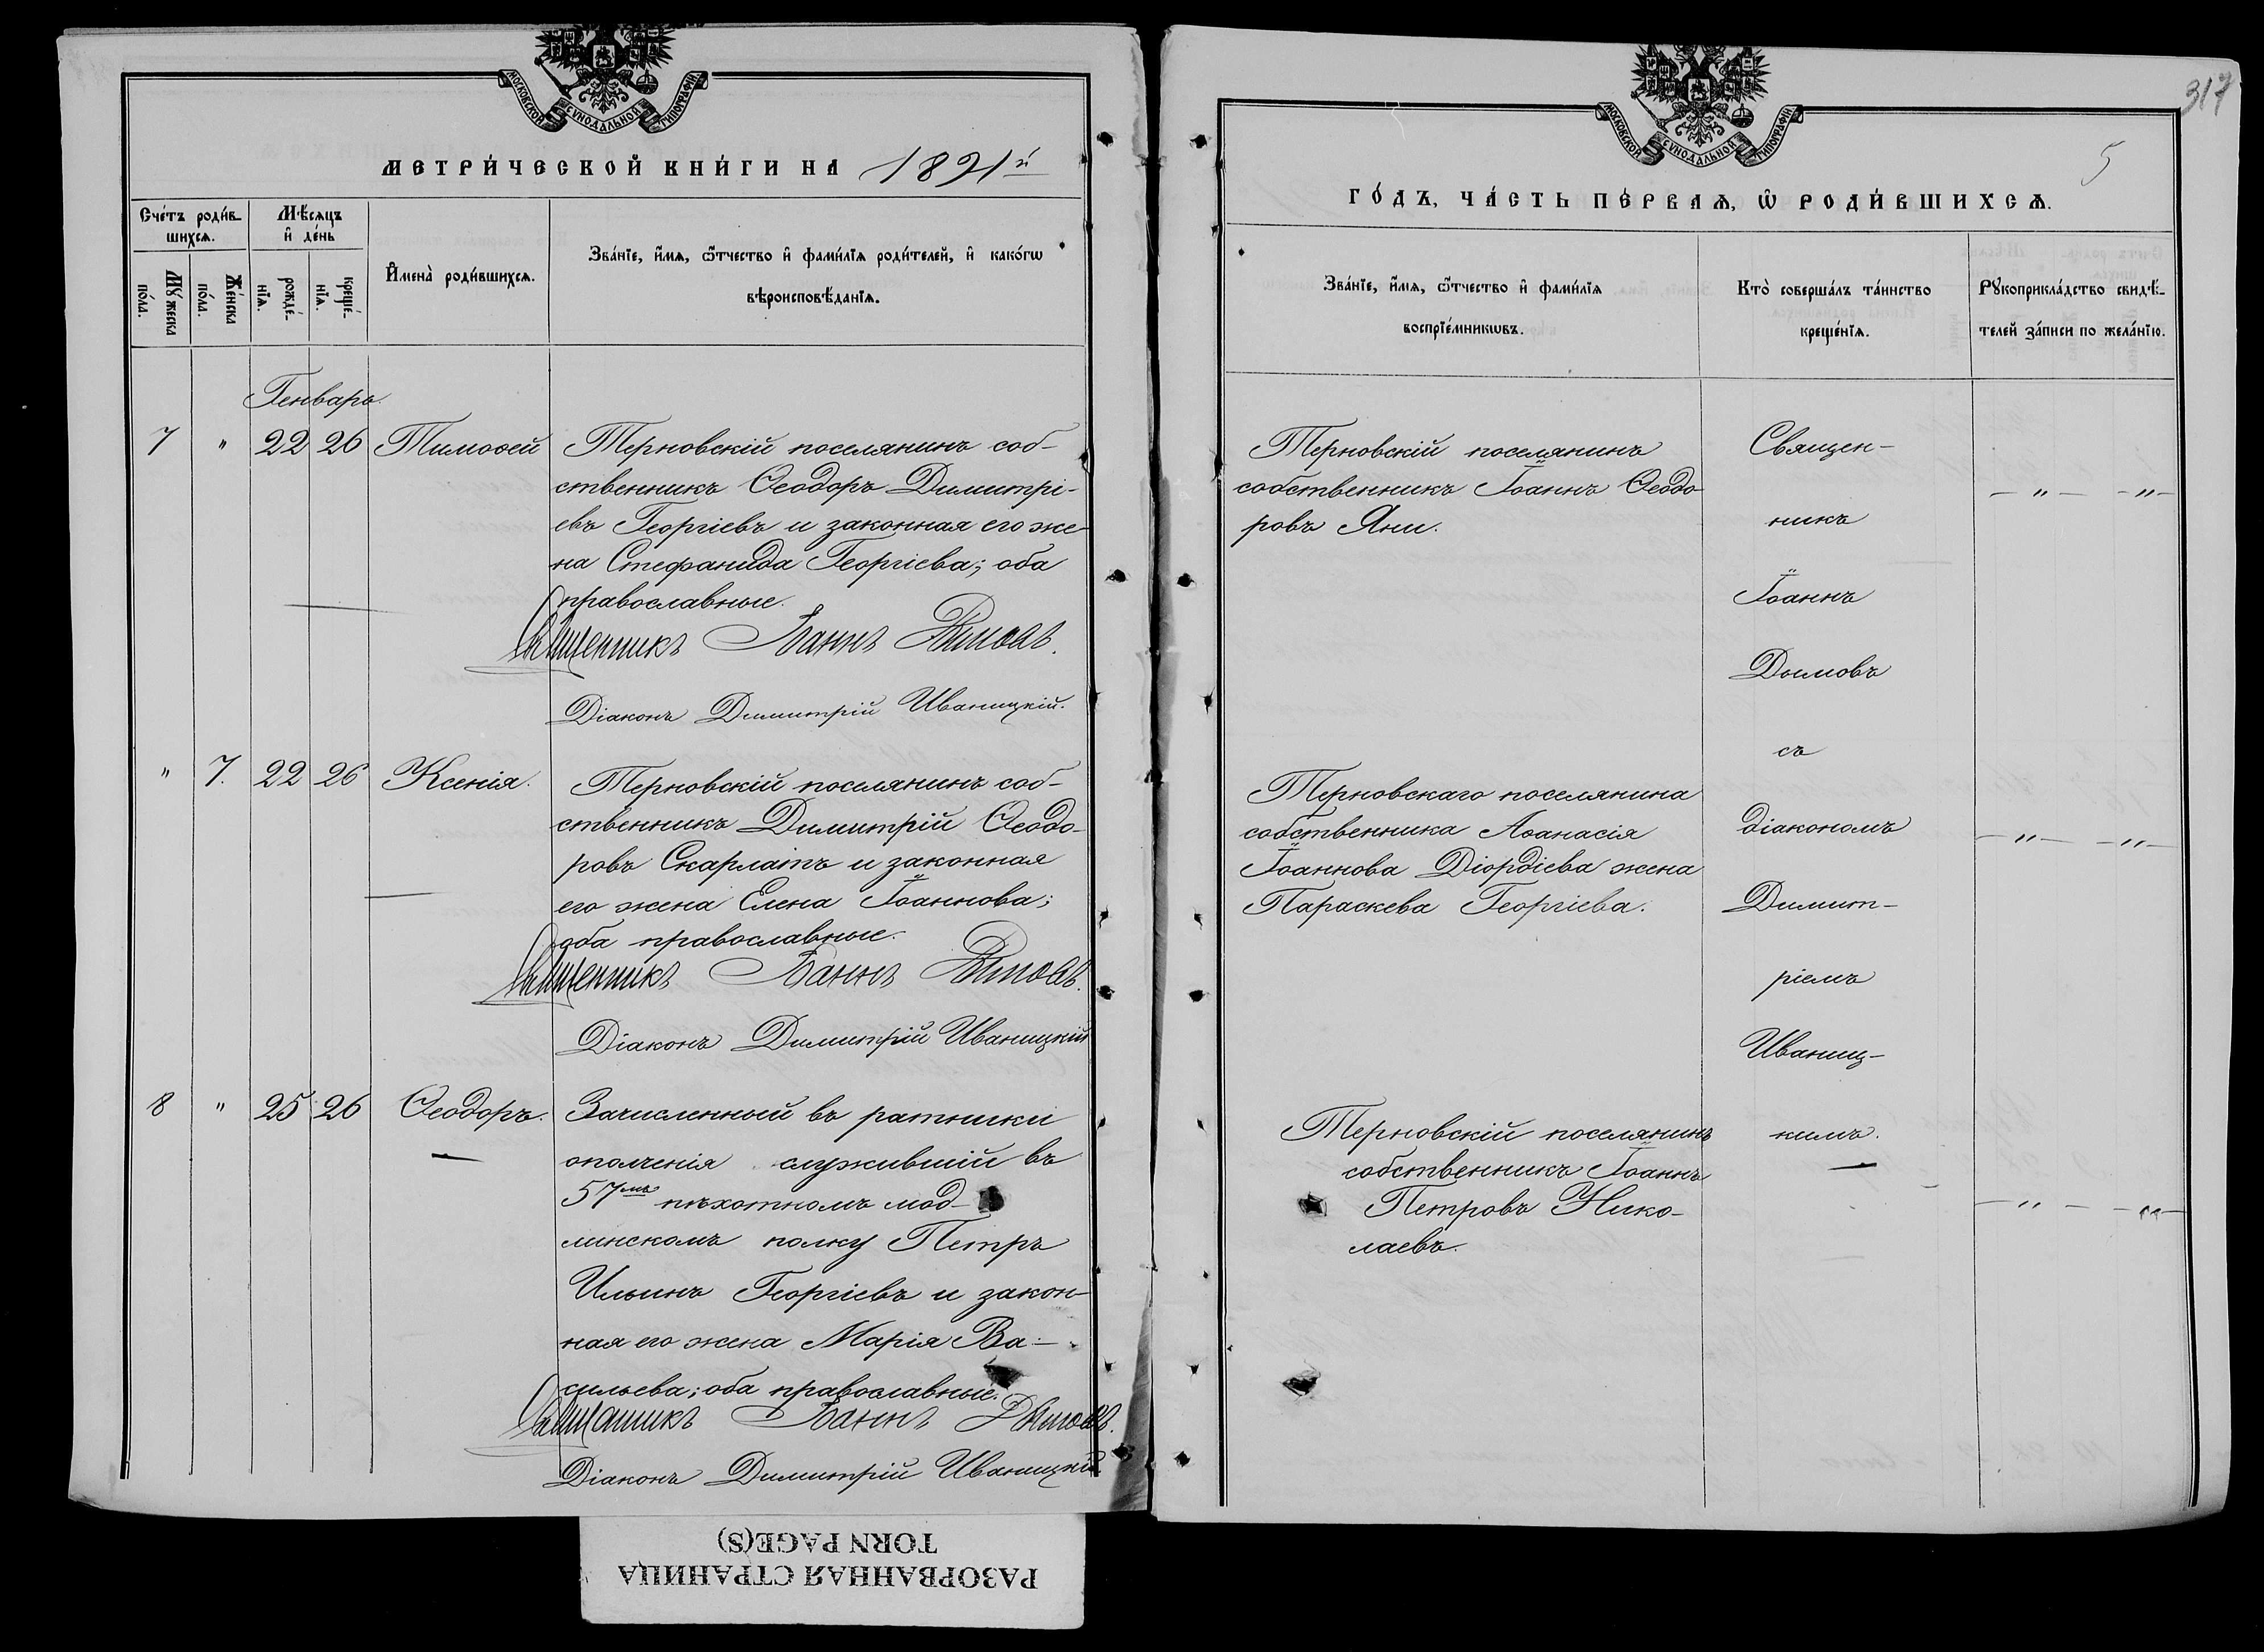 МОСКОВСКОЙ СУНОДАЛЬНОЙ ТИПОГРАФІИ
МЕТРИ́ЧЕСКОЙ КНИ́ГИ НА 1891й
Сче́тъ роди́в-
шихсѧ.
Мѣ́сѧцъ
и҆ де́нь
Мꙋ́жеска
по́ла.
Же́нска
по́ла.
рожде́-
нїѧ.
креще́-
нїѧ.
И҆мена̀ роди́вшихсѧ.
Зва́нїе, и҆́мѧ, ѻ҆́тчество и҆ фами́лїѧ роди́телей, и҆ како́гѡ
вѣроисповѣ́данїѧ.
Генварь.
7 " 22 26 Тимоѳей
Терновскій поселянинъ соб-
ственникъ Ѳеодоръ Димитрі-
евъ Георгіевъ и законная его же-
на Стефанида Георгіева; оба
православные.
Священникъ Іоаннъ Дымовъ.
Діаконъ Димитрій Иваницкій.
" 7. 22 26 Ксенія.
Терновскій поселянинъ соб-
ственникъ Димитрій Ѳеодо-
ровъ Скарлатъ и законная
его жена Елена Іоаннова;
оба православные.
Священникъ Іоаннъ Дымовъ.
Діаконъ Димитрій Иваницкій
8 " 25 26 Ѳеодоръ.
Зачисленный въ ратники
ополченія служившій въ
57мъ пѣхотномъ мод-
линскомъ полку Петръ
Ильинъ Георгіевъ и закон-
ная его жена Марія Ва-
сильева; оба православные.
Священникъ Іоаннъ Дымовъ.
Діаконъ Димитрій Иваницкій
317
5
МОСКОВСКОЙ СУНОДАЛЬНОЙ ТИПОГРАФІИ
ГО́ДЪ, ЧА́СТЬ ПЕ́РВАѦ, Ѡ҆ РОДИ́ВШИХСѦ.
Зва́нїе, и҆́мѧ, ѻ҆́тчество и҆ фами́лїѧ
воспрїе́мникѡвъ.
Кто̀ соверша́лъ та́инство
креще́нїѧ.
Рꙋкоприкла́дство свидѣ́-
телей за́писи по жела́нїю.
Терновскій поселянинъ
собственникъ Іоаннъ Ѳеодо-
ровъ Яни.
— " — — " —
Терновскаго поселянина
собственника Аѳанасія
Іоаннова Діордіева жена
Параскева Георгіева.
— " — — " —
Терновскій поселянинъ
собственникъ Іоаннъ
Петровъ Нико-
лаевъ.
— " — — " —
Священ-
никъ
Іоаннъ
Дымовъ
съ
діакономъ
Димит-
ріемъ
Иваниц-
кимъ.
РАЗОРВАННАЯ СТРАНИЦА
TORN PAGE(S)